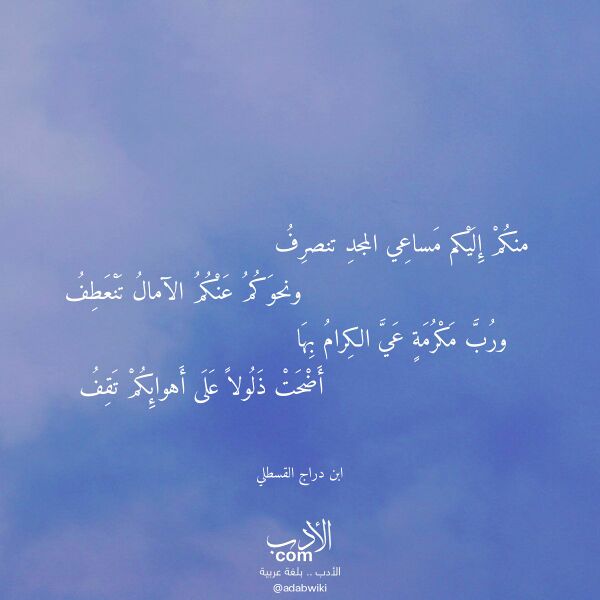 منكُمْ إِلَيْكم مَساعِي المجدِ تنصرِفُ
ونحوَكُمُ عَنْكُمُ الآمالُ تَنْعَطِفُ
ورُبَّ مَكْرُمَةٍ عَيَّ الكِرامُ بِهَا
أَضْحَتْ ذَلُولاً عَلَى أَهوائِكُمْ تَقِفُ
ابن دراج القسطلي
الأدب
com
الأدب .. بلغة عربية
@adabwiki